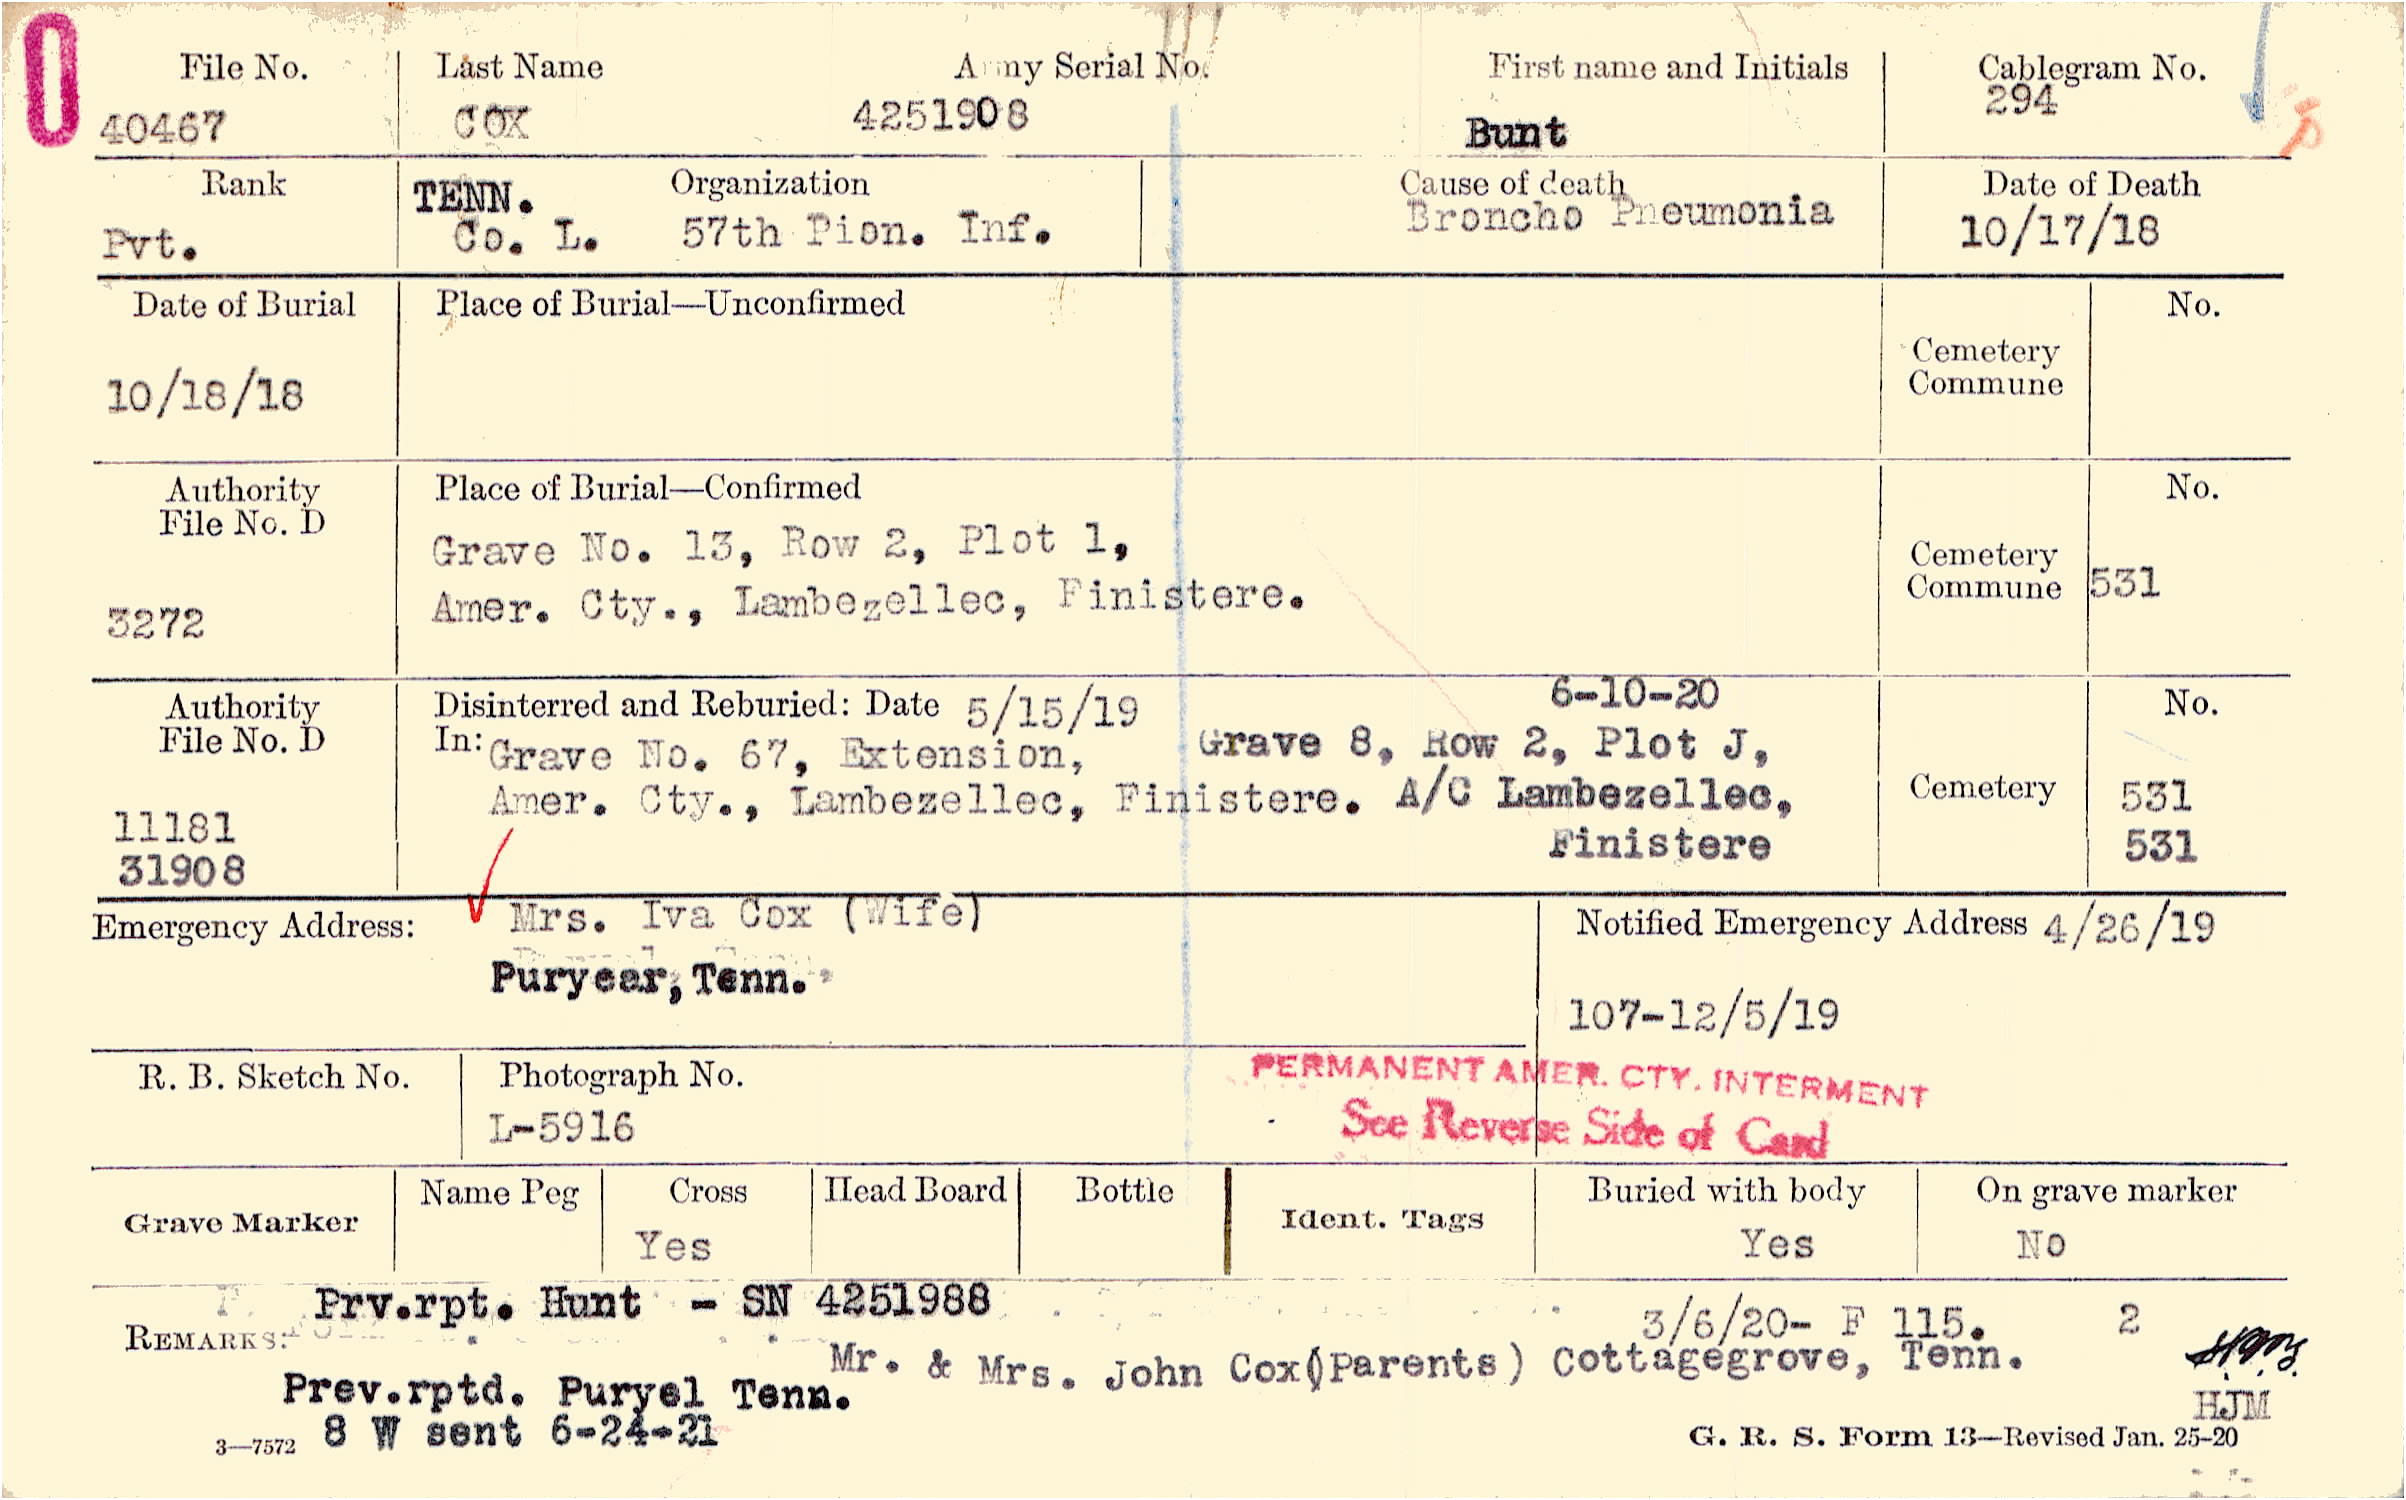 File No. Last Name Army Serial No. First name and Initials Cablegram No.
40467 COX 4251908 Bunt 294
Rank TENN. Organization Cause of death Date of Death
Pvt. Co. L. 57th Pion. Inf. Broncho Pneumonia 10/17/18
Date of Burial Place of Burial—Unconfirmed No.
Cemetery
Commune
10/18/18
Authority Place of Burial—Confirmed No.
File No. D
Grave No. 13, Row 2, Plot 1,
Cemetery
Commune 531
3272 Amer. Cty., Lambezellec, Finistere.
Authority Disinterred and Reburied: Date 5/15/19 6-10-20 No.
File No. D In: Grave No. 67, Extension, Grave 8, Row 2, Plot J,
Amer. Cty., Lambezellec, Finistere. A/C Lambezellec, Cemetery 531
11181 Finistere 531
31908
Emergency Address: Mrs. Iva Cox (Wife) Notified Emergency Address 4/26/19
Puryear, Tenn.
107-12/5/19
R. B. Sketch No. Photograph No. PERMANENT AMER. CTY. INTERMENT
L-5916 See Reverse Side of Card
Grave Marker Name Peg Cross Head Board Bottle Ident. Tags Buried with body On grave marker
Yes Yes No
Prv.rpt. Hunt - SN 4251988 3/6/20- F 115. 2
REMARKS: Mr. & Mrs. John Cox(Parents) Cottagegrove, Tenn.
Prev.rptd. Puryel Tenn. HJM
3—7572 8 W sent 6-24-21 G. R. S. Form 13—Revised Jan. 25-20